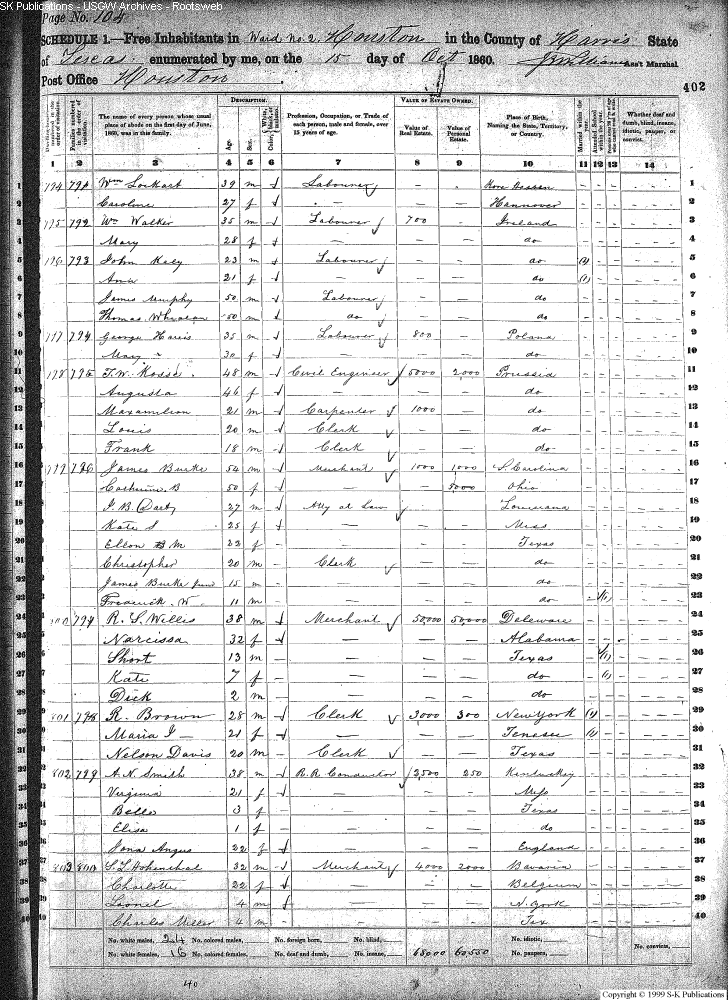 SK Publications - USGW Archives - Rootsweb
Page No. 104
SCHEDULE 1.—Free Inhabitants in Ward No. 2 Houston in the County of Harris State
of Texas enumerated by me, on the 15 day of Oct 1860. Ass't Marshal
Post Office Houston
402
DESCRIPTION. VALUE OF ESTATE OWNED.
The name of every person whose usual place of abode on the first day of June, 1860, was in this family. Age. Sex. Profession, Occupation, or Trade of each person, male and female, over 15 years of age. Value of Real Estate. Value of Personal Estate. Place of Birth, Naming the State, Territory, or Country. Married within the year. Whether deaf and dumb, blind, insane, idiotic, pauper, or convict.
1 2 3 4 5 6 7 8 9 10 11 12 13 14
1 794 791 Wm Lockart 39 m Labourer — - 1
2 Caroline 27 f - — — Hannover 2
3 795 792 Wm Walker 35 m Labourer 700 — Ireland 3
4 Mary 28 f — — — do 4
5 793 John Kely 23 m Labourer — — do (1) 5
6 Ann 21 f — — — do (1) 6
7 James Murphy 50 m Labourer — — do 7
8 Thomas 50 m do — — do 8
9 797 794 George Haris 35 m Labourer 800 — Poland 9
10 Mary " 30 f — — — do 10
11 798 795 T. W. Kosse 48 m Civil Engineer 5000 2,000 Prussia 11
12 Augusta 46 f — — — do 12
13 Maxamilion 21 m Carpenter 1000 — do 13
14 Louis 20 m Clerk — — do 14
15 Frank 18 m Clerk — — do 15
16 799 796 James Burke 54 m Merchant 1000 1000 S. Carolina 16
17 Catherine B 50 f — 5000 Ohio 17
18 I. B. (Dart) 27 m Atty at Law Louisiana 18
19 Kate S 25 f — — — Miss 19
20 Ellen B M 22 f — — — Texas 20
21 Christopher 20 m Clerk — — do 21
22 James Burke Jun 15 m — — — do 22
23 Frederick W. 11 m — — — do (1) 23
24 800 797 R. S. Willis 38 m Merchant 50,000 50,000 Deleware 24
25 Narcissa 32 f — — — Alabama 25
26 Short 13 m — — — Texas (1) 26
27 Kate 7 f — — — do (1) 27
28 Dick 2 m — — — do 28
29 801 798 R. Brown 28 m Clerk 3,000 300 New York (1) 29
30 Maria J — 21 f — — — Tenesee (1) 30
31 Nelson Davis 20 m Clerk — — Texas 31
32 802 799 A. N. Smith 38 m R. R. Conductor 2,500 250 Kentuckey 32
33 Virginia 21 f — — — Miss 33
34 Bello 3 f — — — Texas 34
35 Elisa 1 f — — — do 35
36 Nona Angus 22 f — — — England 36
37 803 800 S. L. Hohenthal 32 m Merchant 4000 2000 Bavaria 37
38 Charlotte 22 f — — — Belgium 38
39 Leonel 4 m — — — N. York 39
40 Charles Miller 4 m — — — Tex 40
No. white males, 24 No. colored males, No. foreign born, No. blind, No. idiotic, No. convicts,
No. white females, 16 No. colored females, No. deaf and dumb, No. insane, 68000 60,550 No. paupers,
40
Copyright © 1999 S-K Publications